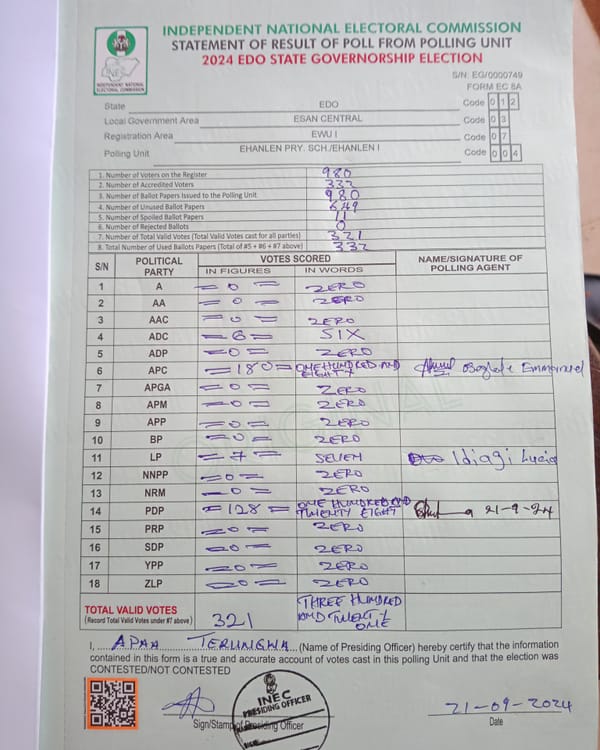 INDEPENDENT NATIONAL ELECTORAL COMMISSION
STATEMENT OF RESULT OF POLL FROM POLLING UNIT
2024 EDO STATE GOVERNORSHIP ELECTION
INEC
INDEPENDENT NATIONAL ELECTORAL COMMISSION
S/N: EG/0000749
FORM EC 8A
State EDO Code 0 1 2
Local Government Area ESAN CENTRAL Code 0 3
Registration Area EWU I Code 0 7
Polling Unit EHANLEN PRY. SCH./EHANLEN I Code 0 0 4
1. Number of Voters on the Register 980
2. Number of Accredited Voters 332
3. Number of Ballot Papers Issued to the Polling Unit 980
4. Number of Unused Ballot Papers 649
5. Number of Spoiled Ballot Papers 11
6. Number of Rejected Ballots 0
7. Number of Total Valid Votes (Total Valid Votes cast for all parties) 321
8. Total Number of Used Ballots Papers (Total of #5 + #6 + #7 above) 332
S/N POLITICAL PARTY VOTES SCORED NAME/SIGNATURE OF POLLING AGENT
IN FIGURES IN WORDS
1 A =0= ZERO
2 AA =0= ZERO
3 AAC =0= ZERO
4 ADC =6= SIX
5 ADP =0= ZERO
6 APC =180= ONE HUNDRED AND EIGHTY Emmanuel
7 APGA =0= ZERO
8 APM =0= ZERO
9 APP =0= ZERO
10 BP =0= ZERO
11 LP =7= SEVEN Idiagi Lucia
12 NNPP =0= ZERO
13 NRM =0= ZERO
14 PDP =128= ONE HUNDRED AND TWENTY EIGHT 21-9-24
15 PRP =0= ZERO
16 SDP =0= ZERO
17 YPP =0= ZERO
18 ZLP =0= ZERO
TOTAL VALID VOTES
(Record Total Valid Votes under #7 above) 321 THREE HUNDRED AND TWENTY ONE
I, APAA TERUNGWA (Name of Presiding Officer) hereby certify that the information
contained in this form is a true and accurate account of votes cast in this polling Unit and that the election was
CONTESTED/NOT CONTESTED
INEC
PRESIDING OFFICER
21-09-2024
Sign/Stamp of Presiding Officer Date